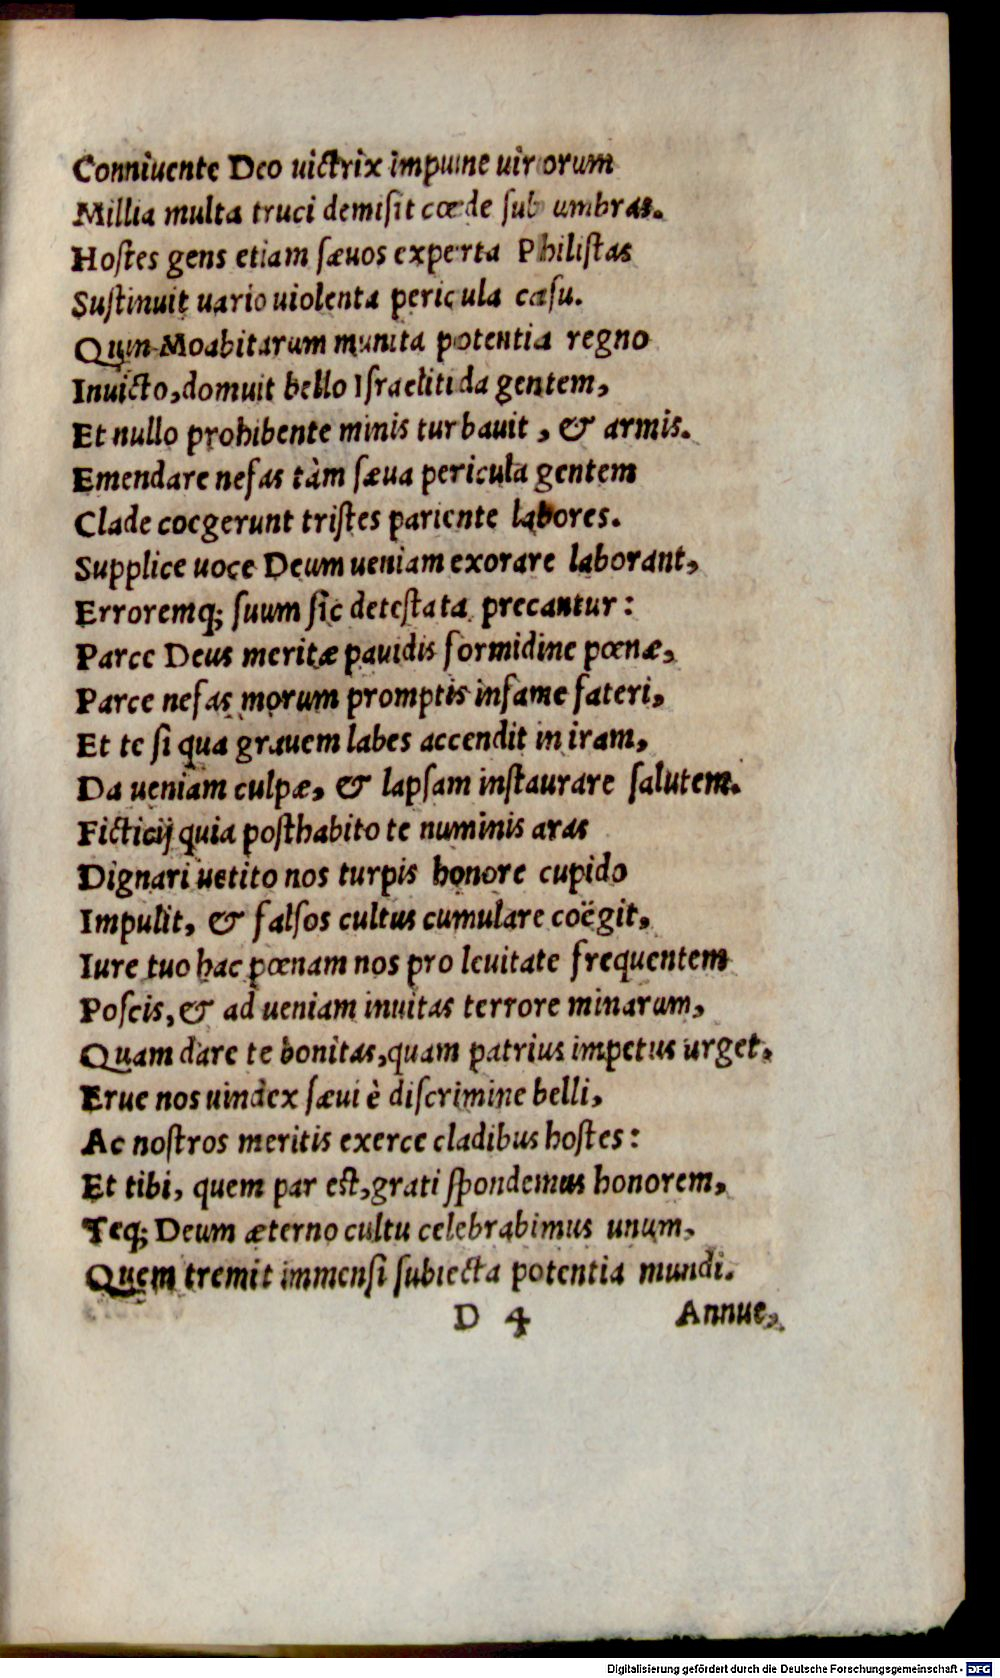 Conniuente Deo uictrix impune uirorum
Millia multa truci demisit cœde sub umbras.
Hostes gens etiam sæuos experta Philistas
Sustinuit uario uiolenta pericula casu.
Quin Moabitarum munita potentia regno
Inuicto, domuit bello Israelitida gentem,
Et nullo prohibente minis turbauit, & armis.
Emendare nefas tàm sæua pericula gentem
Clade coegerunt tristes pariente labores.
Supplice uoce Deum ueniam exorare laborant,
Erroremq; suum sic detestata precantur:
Parce Deus meritæ pauidis formidine pœnæ,
Parce nefas morum promptis infame fateri,
Et te si qua grauem labes accendit in iram,
Da ueniam culpæ, & lapsam instaurare salutem.
Ficticij quia posthabito te numinis aras
Dignari uetito nos turpis honore cupido
Impulit, & falsos cultus cumulare coëgit,
Iure tuo hac pœnam nos pro leuitate frequentem
Poscis, & ad ueniam inuitas terrore minarum,
Quam dare te bonitas, quam patrius impetus urget.
Erue nos uindex sæui è discrimine belli,
Ac nostros meritis exerce cladibus hostes:
Et tibi, quem par est, grati spondemus honorem,
Teq; Deum æterno cultu celebrabimus unum,
Quem tremit immensi subiecta potentia mundi.
D 4 Annue,
Digitalisierung gefördert durch die Deutsche Forschungsgemeinschaft - DFG